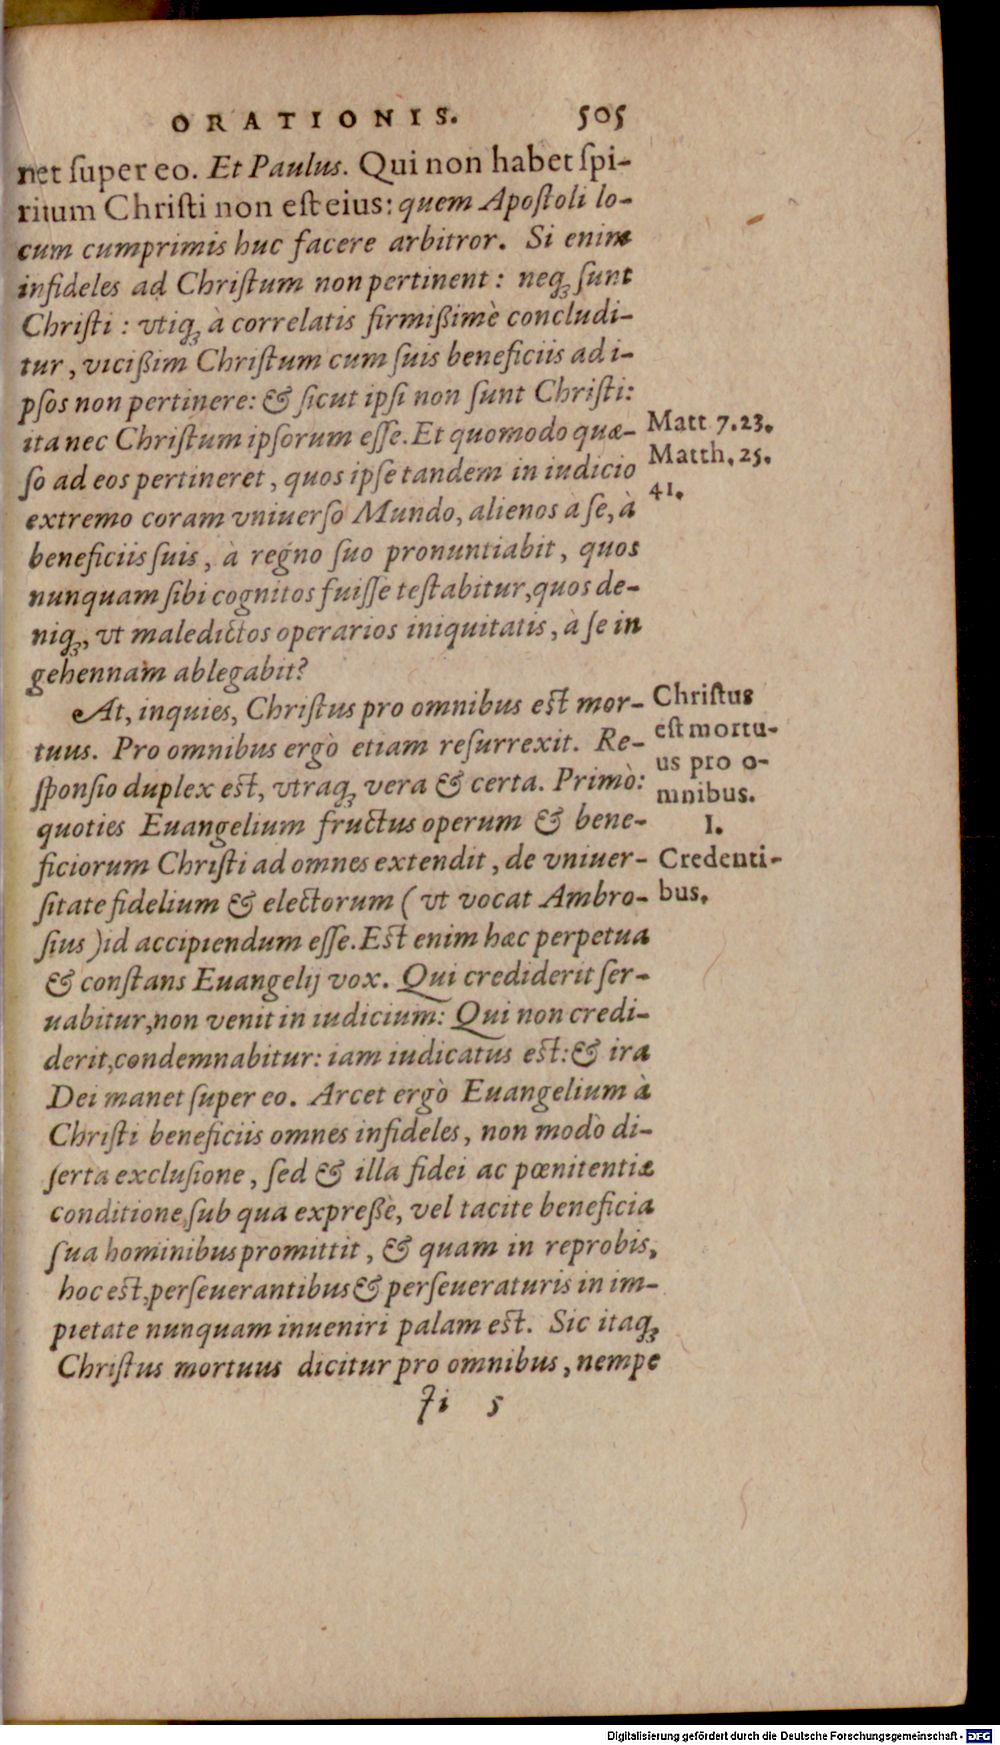 ORATIONIS. 505
net ſuper eo. Et Paulus. Qui non habet ſpi-
ritum Chriſti non eſt eius: quem Apoſtoli lo-
cum cumprimis huc facere arbitror. Si enim
infideles ad Chriſtum non pertinent: neqꝫ ſunt
Chriſti: vtiqꝫ à correlatis firmißimè concludi-
tur, vicißim Chriſtum cum ſuis beneficiis ad i-
pſos non pertinere: & ſicut ipſi non ſunt Chriſti:
ita nec Chriſtum ipſorum eſſe. Et quomodo quæ-
ſo ad eos pertineret, quos ipſe tandem in iudicio
extremo coram vniuerſo Mundo, alienos à ſe, à
beneficiis ſuis, à regno ſuo pronuntiabit, quos
nunquam ſibi cognitos fuiſſe teſtabitur, quos de-
niqꝫ, vt maledictos operarios iniquitatis, à ſe in
gehennam ablegabit?
Matt 7.23.
Matth. 25.
41.
At, inquies, Chriſtus pro omnibus eſt mor-
tuus. Pro omnibus ergò etiam reſurrexit. Re-
ſponſio duplex eſt, vtraqꝫ vera & certa. Primò:
quoties Euangelium fructus operum & bene-
ficiorum Chriſti ad omnes extendit, de vniuer-
ſitate fidelium & electorum (vt vocat Ambro-
ſius) id accipiendum eſſe. Eſt enim hæc perpetua
& conſtans Euangelij vox. Qui crediderit ſer-
uabitur, non venit in iudicium: Qui non credi-
derit, condemnabitur: iam iudicatus eſt: & ira
Dei manet ſuper eo. Arcet ergò Euangelium à
Chriſti beneficiis omnes infideles, non modò di-
ſerta excluſione, ſed & illa fidei ac pœnitentiæ
conditione, ſub qua expreßè, vel tacite beneficia
ſua hominibus promittit, & quam in reprobis,
hoc eſt, perſeuerantibus & perſeueraturis in im-
pietate nunquam inueniri palam eſt. Sic itaqꝫ
Chriſtus mortuus dicitur pro omnibus, nempe
Chriſtus
eſt mortu-
us pro o-
mnibus.
I.
Credenti-
bus.
Ii 5
Digitalisierung gefördert durch die Deutsche Forschungsgemeinschaft - DFG